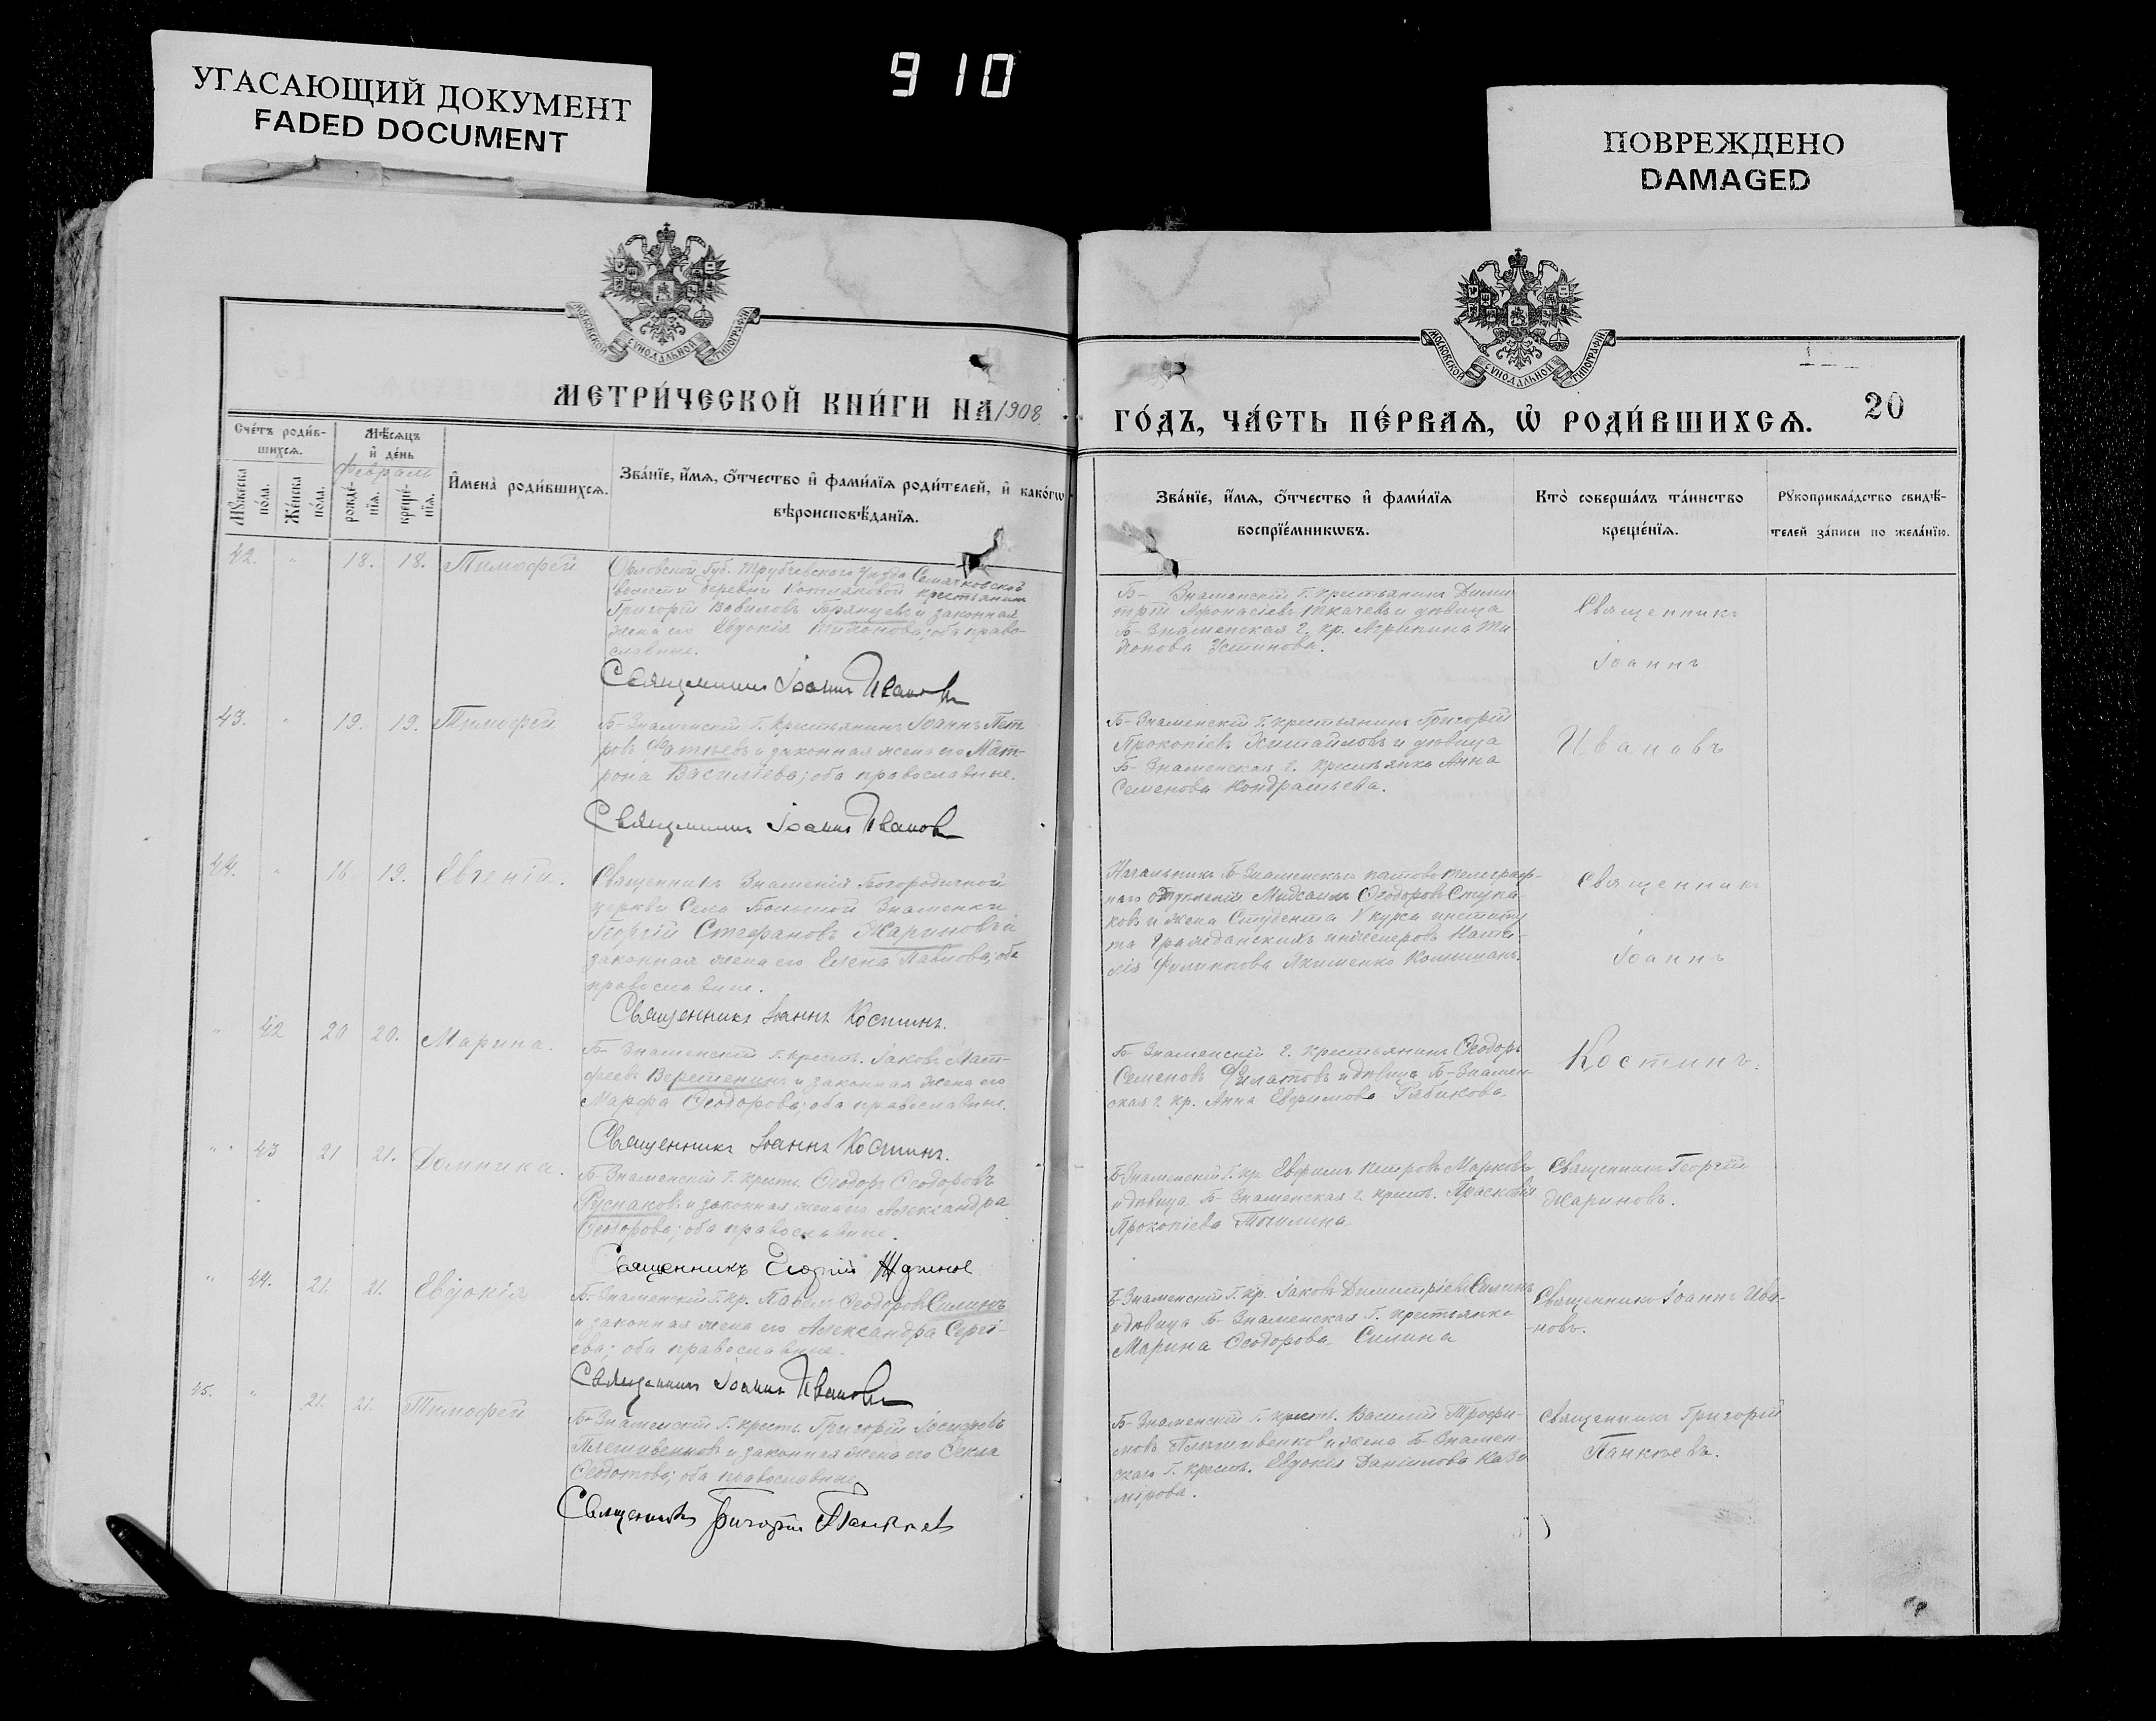 910
УГАСАЮЩИЙ ДОКУМЕНТ
FADED DOCUMENT
ПОВРЕЖДЕНО
DAMAGED
МОСКОВСКОЙ СѴНОДАЛЬНОЙ ТИПОГРАФІИ
МОСКОВСКОЙ СѴНОДАЛЬНОЙ ТИПОГРАФІИ
МЕТРИ́ЧЕСКОЙ КНИ́ГИ НА 1908
ГО́ДЪ, ЧА́СТЬ ПЕ́РВАѦ, Ѡ҆ РОДИ́ВШИХСѦ.
20
Сче́тъ роди́в-
шихсѧ.
Мꙋжеска по́ла.
Же́нска по́ла.
Мѣ́сѧцъ
и҆ де́нь
Февраль
рожде́-
нїѧ.
креще́-
нїѧ.
И҆мена̀ роди́вшихсѧ.
Зва́нїе, и҆́мѧ, ѻ҆́тчество и҆ фами́лїѧ роди́телей, и҆ како́гѡ
вѣроисповѣ́данїѧ.
Зва́нїе, и҆́мѧ, ѻ҆́тчество и҆ фами́лїѧ
воспрїе́мникѡвъ.
Кто̀ соверша́лъ та́инство
креще́нїѧ.
Рꙋкоприкла́дство свидѣ́-
телей за́писи по жела́нїю.
42. " 18. 18. Тимофей
Орловской Губ. Трубчевского Уѣзда Семячковской
волости деревни Котляковой крестьянинъ
Григорій Вавиловъ Брянцевъ и законная
жена его Евдокія Тихонова; оба право-
славные.
Священникъ Іоаннъ Ивановъ
Б- Знаменскій Г. крестьянинъ Дими
трій Афонасіевъ Ткачевъ и дѣвица
Б- Знаменская г. кр. Агрипина Ти
хонова Устинова.
Священникъ
Іоаннъ
Ивановъ
43. " 19. 19. Тимофей
Б- Знаменскій Г. крестьянинъ Іоаннъ Пет
ровъ Фатѣевъ и законная жена его Мат-
рона Василіева; оба православные.
Священникъ Іоаннъ Ивановъ
Б- Знаменскій Г. крестьянинъ Григорій
Прокопіевъ и дѣвица
Б- Знаменская г. крестьянка Анна
Семенова Кондратьева.
44. " 16 19. Евгеній.
Священникъ Знаменія Богородичной
церкви Села Большой Знаменки
Георгій Стефановъ Жариновъ и
законная жена его Елена Павлова; оба
православные.
Священникъ Іоаннъ Костинъ.
Начальникъ Б- Знаменскаго почтово телеграф-
наго отдѣленія Михаилъ Ѳеодоровъ Ступа-
ковъ и жена Студента V курса институ
та Гражданскихъ инженеровъ Ната-
лія Филиппова Якименко
Священникъ
Іоаннъ
Костинъ.
" 42 20 20. Марина.
Б- Знаменскій г. крест. Іаковъ Мат-
феевъ Веретенинъ и законная жена его
Марфа Ѳеодорова; оба православные.
Священникъ Іоаннъ Костинъ.
Б- Знаменскій г. крестьянинъ Ѳеодоръ
Семеновъ Филатовъ и дѣвица Б- Знамен-
ская г. кр. Анна Евфимова Рябикова
" 43 21 21. Домника.
Б- Знаменскій Г. крест. Ѳеодоръ Ѳеодоровъ
Руснаковъ и законная жена его Александра
Ѳеодорова; оба православные.
Священникъ Георгій Жариновъ
Б- Знаменскій Г. кр. Евфимъ Петровъ Марковъ
и дѣвица Б- Знаменская г. крест. Прасковія
Прокопіева
Священникъ Георгій
Жариновъ.
" 44. 21. 21. Евдокія
Б- Знаменскій Г. кр. Павелъ Ѳеодоровъ Силинъ
и законная жена его Александра Сергі-
ева; оба православные.
Священникъ Іоаннъ Ивановъ
Б- Знаменскій Г. кр. Іаковъ Димитріевъ Силинъ
и дѣвица Б- Знаменская Г. крестьянка
Марина Ѳеодорова Силина
Священникъ Іоаннъ Ива-
новъ.
45. " 21. 21. Тимофей
Б- Знаменскій Г. крест. Григорій Іосифовъ
Плешивенковъ и законная жена его Ѳекла
Ѳедотова; оба православные
Священникъ Григорій Панкѣевъ
Б- Знаменскій Г. крест. Василій Трофи-
мовъ Плѣшивенковъ и жена Б- Знамен-
скаго Г. крест. Евдокія Даніилова Кази
мірова.
Священникъ Григорій
Панкѣевъ.